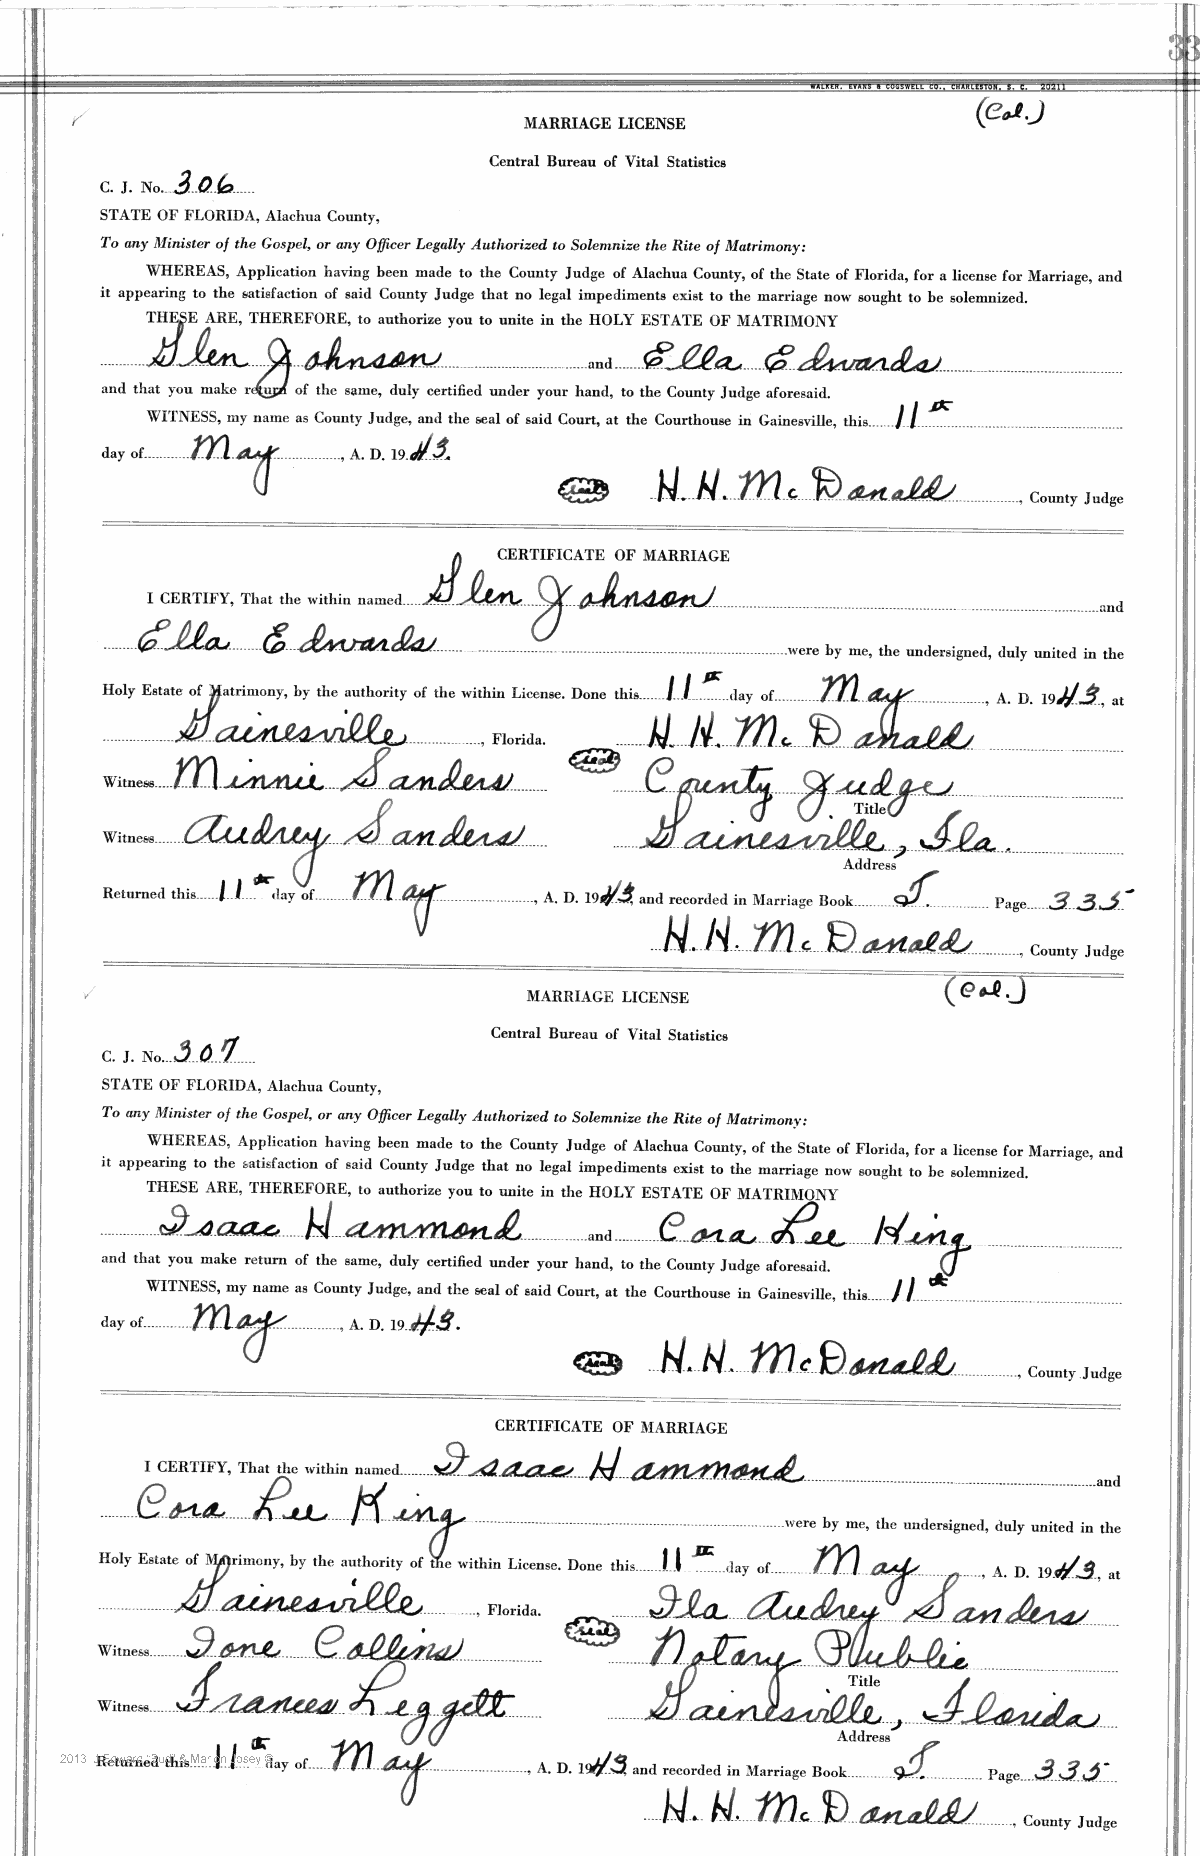 33
WALKER, EVANS & COGSWELL CO., CHARLESTON, S. C. 20211
(Col.)
MARRIAGE LICENSE
Central Bureau of Vital Statistics
C. J. No. 306
STATE OF FLORIDA, Alachua County,
To any Minister of the Gospel, or any Officer Legally Authorized to Solemnize the Rite of Matrimony:
WHEREAS, Application having been made to the County Judge of Alachua County, of the State of Florida, for a license for Marriage, and
it appearing to the satisfaction of said County Judge that no legal impediments exist to the marriage now sought to be solemnized.
THESE ARE, THEREFORE, to authorize you to unite in the HOLY ESTATE OF MATRIMONY
Glen Johnson and Ella Edwards
and that you make return of the same, duly certified under your hand, to the County Judge aforesaid.
WITNESS, my name as County Judge, and the seal of said Court, at the Courthouse in Gainesville, this 11th
day of May, A. D. 1943.
seal H. H. McDonald, County Judge
CERTIFICATE OF MARRIAGE
I CERTIFY, That the within named Glen Johnson and
Ella Edwards were by me, the undersigned, duly united in the
Holy Estate of Matrimony, by the authority of the within License. Done this 11th day of May, A. D. 1943, at
Gainesville, Florida. H. H. McDonald
seal
Witness Minnie Sanders County Judge
Title
Witness Audrey Sanders Gainesville, Fla.
Address
Returned this 11th day of May, A. D. 1943 and recorded in Marriage Book T. Page 335
H. H. McDonald, County Judge
(Col.)
MARRIAGE LICENSE
Central Bureau of Vital Statistics
C. J. No. 307
STATE OF FLORIDA, Alachua County,
To any Minister of the Gospel, or any Officer Legally Authorized to Solemnize the Rite of Matrimony:
WHEREAS, Application having been made to the County Judge of Alachua County, of the State of Florida, for a license for Marriage, and
it appearing to the satisfaction of said County Judge that no legal impediments exist to the marriage now sought to be solemnized.
THESE ARE, THEREFORE, to authorize you to unite in the HOLY ESTATE OF MATRIMONY
Isaac Hammond and Cora Lee King
and that you make return of the same, duly certified under your hand, to the County Judge aforesaid.
WITNESS, my name as County Judge, and the seal of said Court, at the Courthouse in Gainesville, this 11th
day of May, A. D. 1943.
seal H. H. McDonald, County Judge
CERTIFICATE OF MARRIAGE
I CERTIFY, That the within named Isaac Hammond and
Cora Lee King were by me, the undersigned, duly united in the
Holy Estate of Matrimony, by the authority of the within License. Done this 11th day of May, A. D. 1943, at
Gainesville, Florida. Ila Audrey Sanders
seal
Witness Ione Collins Notary Public
Title
Witness Frances Leggett Gainesville, Florida
Address
2013 J Edward "Judi" & Marion Josey ©
Returned this 11th day of May, A. D. 1943 and recorded in Marriage Book T. Page 335
H. H. McDonald, County Judge